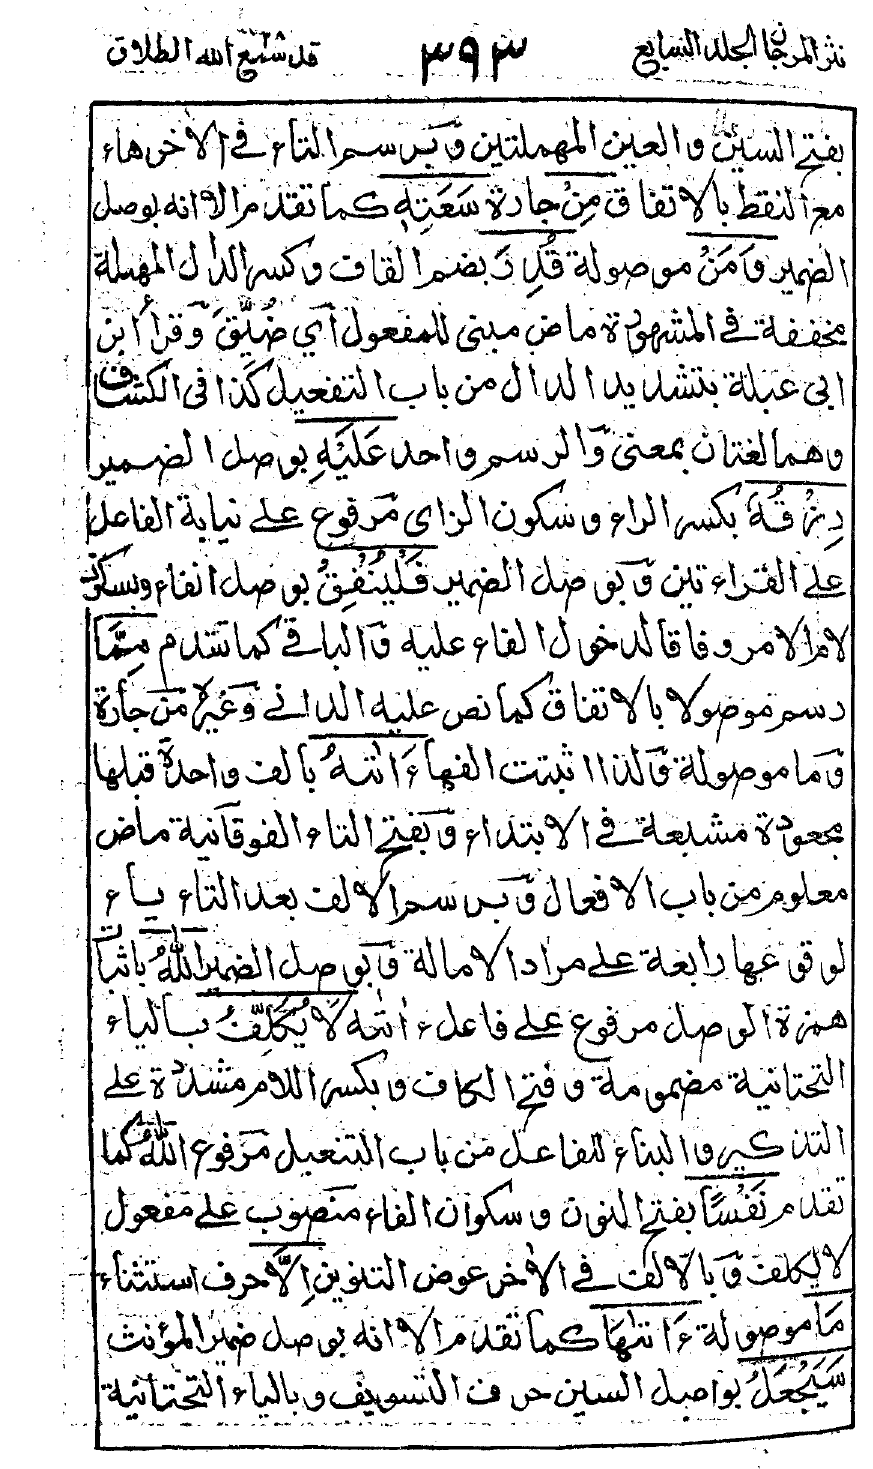 نثر المرجان الجلد السابع ٣٩٣ قد سمع الله الطلاق
بفتح السين والعين المهملتين وبرسم التاء في الاخر هاء
مع النقط بالاتفاق مِنْ جارة سَعَتِهٖ كما تقدم الا انه بوصل
الضمير وَمَنْ موصولة قُدِرَ بضم القاف وكسر الدال المهملة
مخففة في المشهورة ماض مبني للمفعول اي ضُيِّقَ وقرأ ابن
ابي عبلة بتشديد الدال من باب التفعيل كذا في الكشاف
وهما لغتان بمعنى والرسم واحد عَلَيْهِ بوصل الضمير
رِزْقُهٗ بكسر الراء وسكون الزاي مرفوع على نيابة الفاعل
على القراءتين وبوصل الضمير فَلْيُنْفِقْ بوصل الفاء وبسكون
لام الامر وفاقا لدخول الفاء عليه والباقي كما تقدم مِمَّا
رسم موصولا بالاتفاق كما نص عليه الداني وغيره من جارة
وما موصولة ولذا اثبتت الفها ءَاتٰىهُ بالف واحدة قبلها
مجعودة مشبعة في الابتداء وبفتح التاء الفوقانية ماض
معلوم من باب الافعال وبرسم الالف بعد التاء ياء
لوقوعها رابعة على مراد الامالة وبوصل الضمير اللّٰهُ باثبات
همزة الوصل مرفوع على فاعل ءاتٰىه لَا يُكَلِّفُ بالياء
التحتانية مضمومة وفتح الكاف وبكسر اللام مشددة على
التذكير والبناء للفاعل من باب التفعيل مرفوع اللّٰهُ كما
تقدم نَفْسًا بفتح النون وسكون الفاء منصوب على مفعول
لا يكلف وبالالف في الاخر عوض التنوين اِلَّا حرف استثناء
مَا موصولة ءَاتٰىهَا كما تقدم الا انه بوصل ضمير المؤنث
سَيَجْعَلُ بواصل السين حرف التسويف وبالياء التحتانية